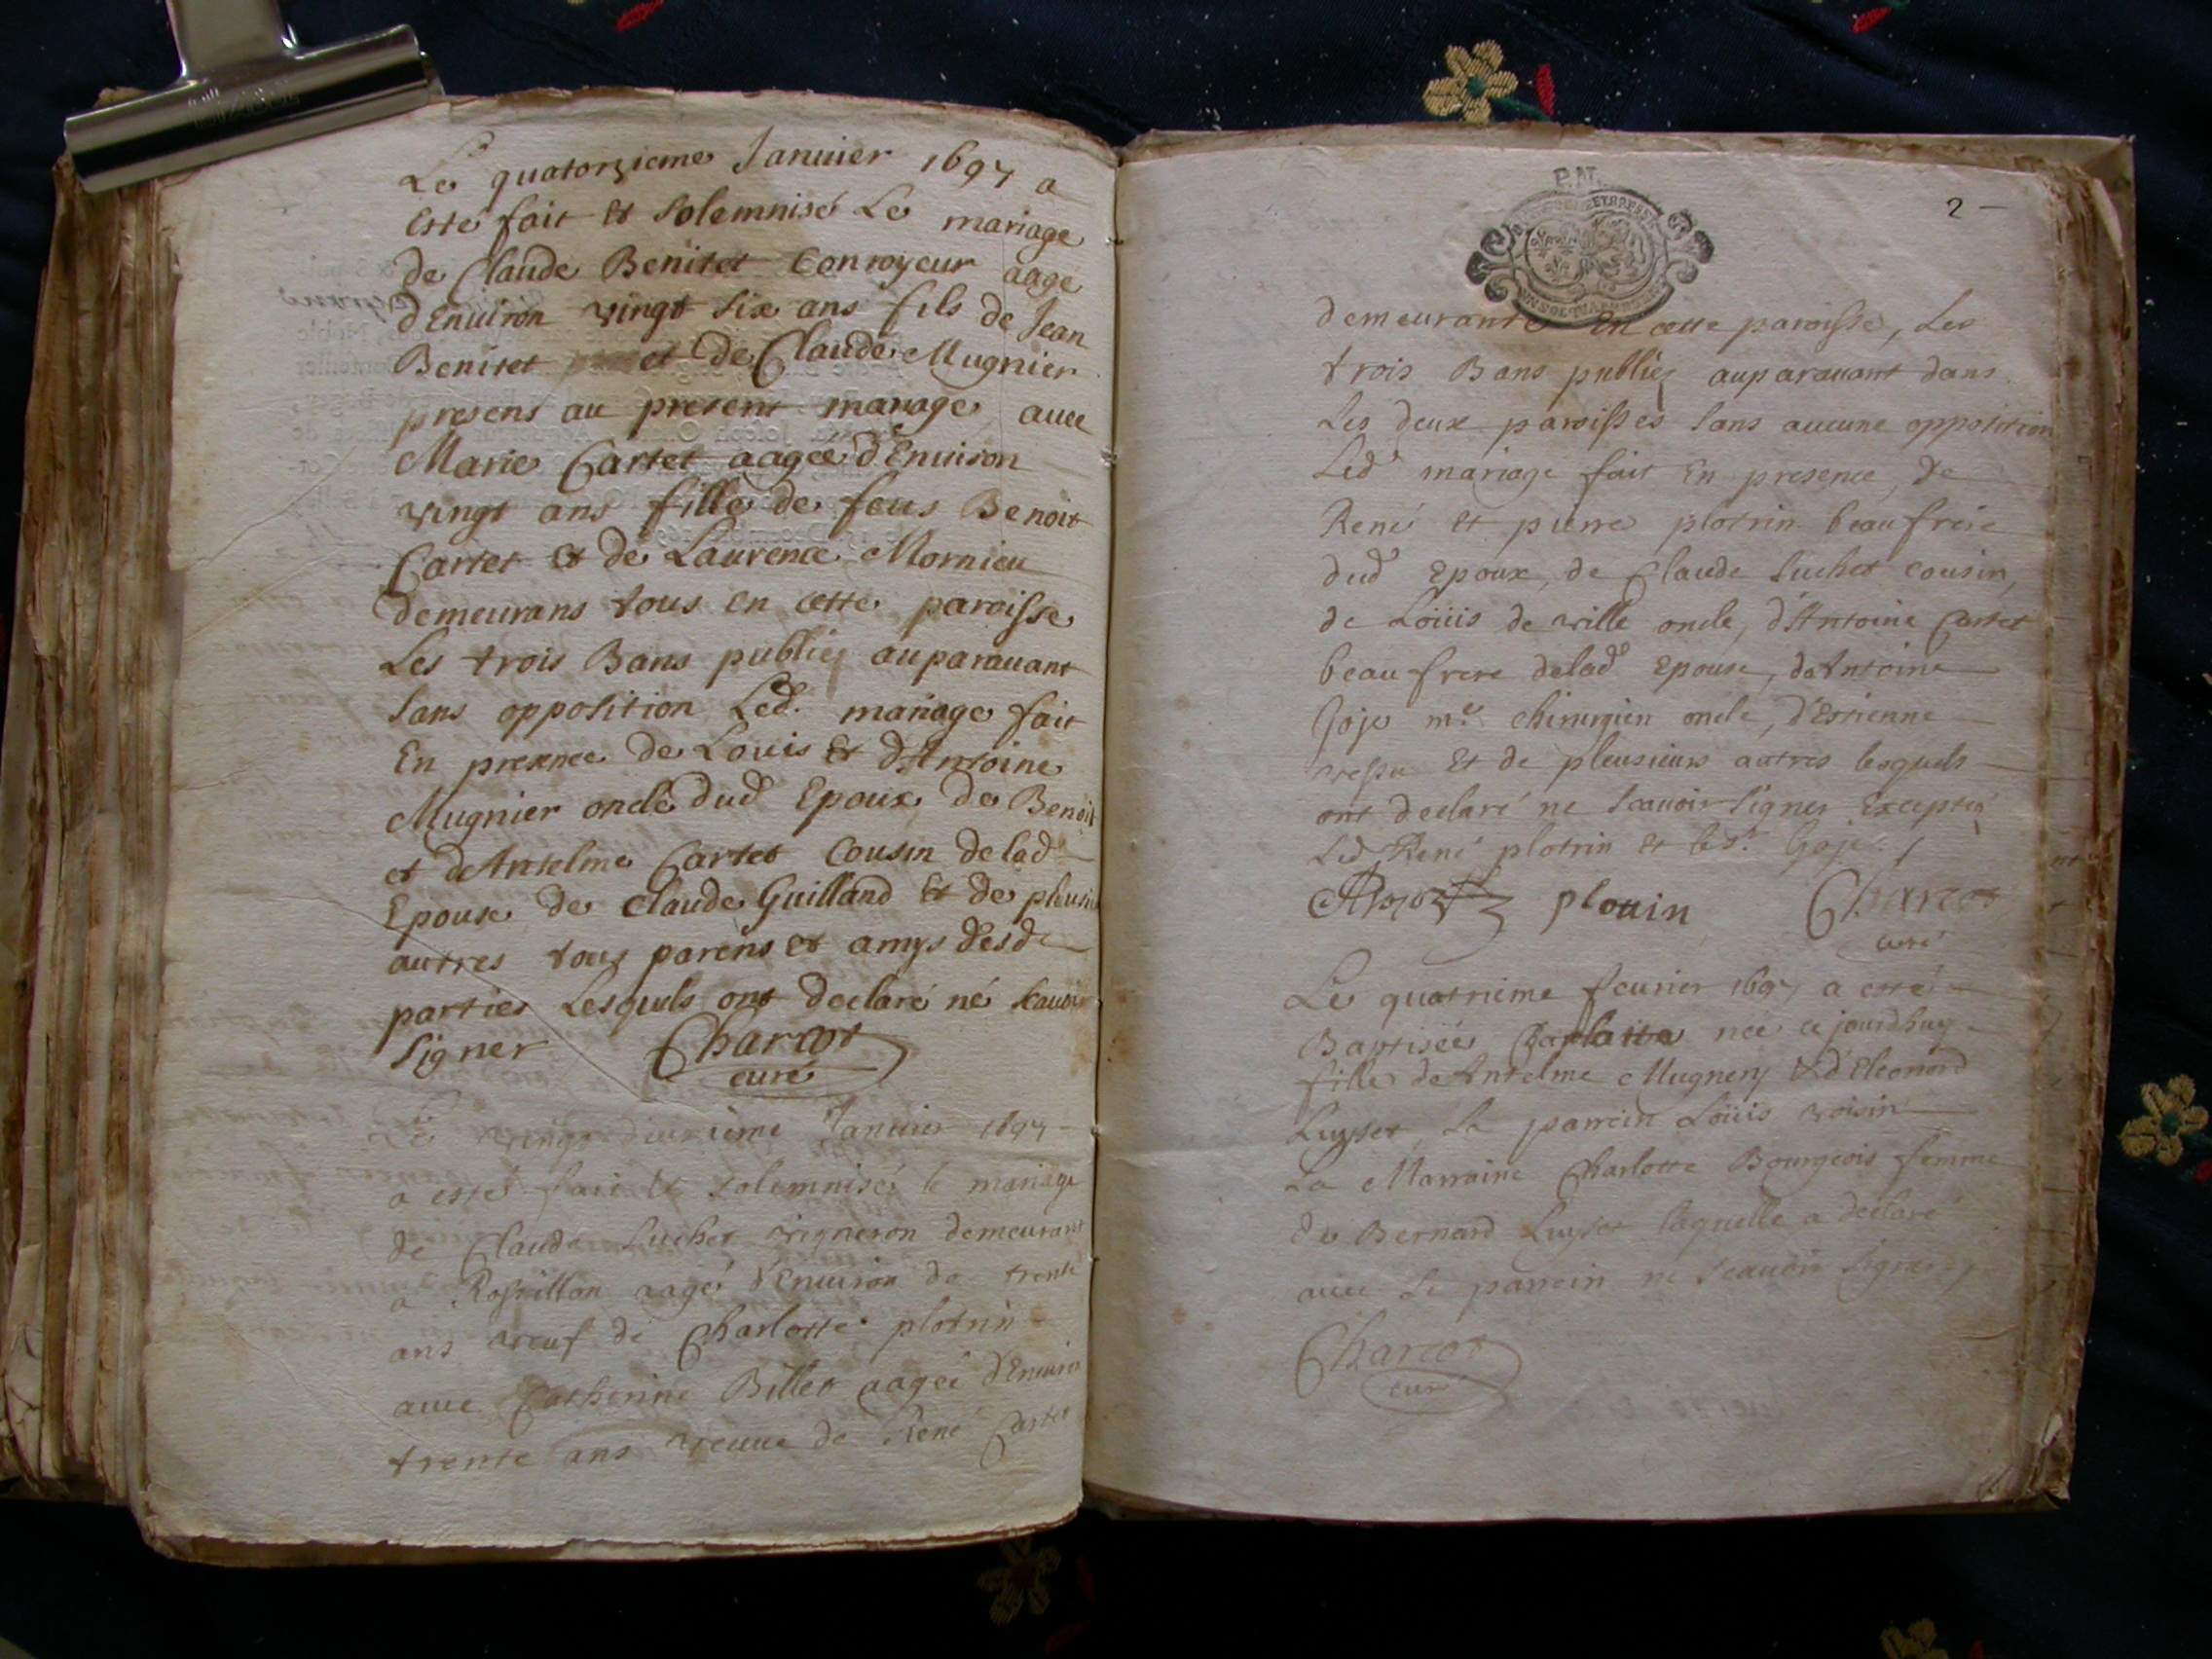 Le quatorzieme Januier 1697 a
esté fait et solemnisé Le mariage
de Claude Benitet Conroyeur aagé
d'Enuiron vingt six ans fils de Jean
Benitet et de Claude Mugnier
presens au present mariage auec
Marie Cartet aagée d'Enuiron
vingt ans fille de feus Benoit
Cartet et de Laurence Mornieu
demeurans tous en cette paroisse
Les trois Bans publiez auparauant
sans opposition Led. mariage fait
En presence de Louis et d'Antoine
Mugnier oncle dud Epoux de Benoit
et d'Antelme Cartet Cousin delad
Epouse de Claude Guilland et de plusieu
autres tous parens et amys desd
parties Lesquels ont declaré ne scauoir
signer Charcot
curé
Le vingt deuxieme Januier 1697
a esté fait et solemnisé le mariage
de Claude Suchet vigneron demeurant
a Rossillon aagé d'Enuiron de trente
ans veuf de Charlotte plotrin
auec Catherine Billet aagée d'Enuiron
trente ans veuue de René Cartet
2
demeurante En cette paroisse, Les
trois Bans publiez auparauant dans
Les deux paroisses sans aucune opposition
Led mariage fait En presence, de
René et pierre plotrin beaufrere
dud Epoux, de Claude Suchet cousin,
de Loüis de ville oncle, d'Antoine Cartet
beaufrere delad Epouse, d'Antoine
Goje me chirurgien oncle, d'Estienne
et de pleusieurs autres lesquels
ont declaré ne scauoir signer Excepté
Led René plotrin et le sr. Goje
plouin Charcot
curé
Le quatrieme feurier 1697 a esté
Baptisée Charlotte née ce jourdhuy
fille d'Antelme Mugnery et d'Eleonord
Luyset Le parrein Loüis voisin
La Marraine Charlotte Bourgeois femme
de Bernard Luyset laquelle a declaré
auec le parrein ne scauoir signer
Charcot
curé